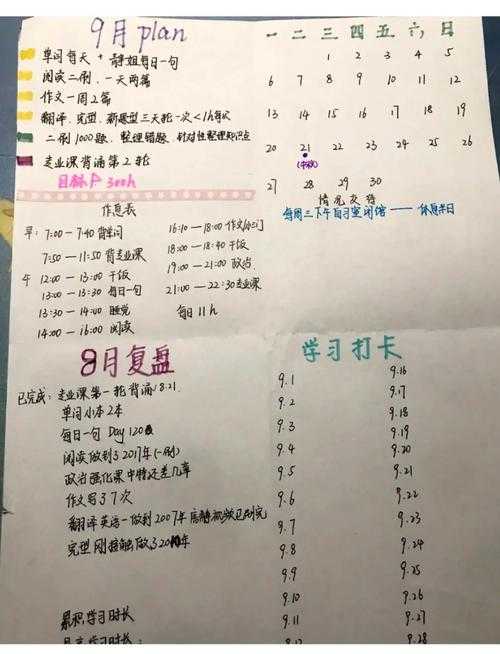 9月plan
单词每天 + 静姐每日一句
阅读二刷,一天两篇
作文一周2篇
翻译、完型、新题型三天轮一次<1h每次
二刷1000题、整理错题、针对性整理知识点
专业课背诵第2轮
目标 300h
一二三四五六日
1 2 3 4 5
6 7 8 9 10 11 12
13 14 15 16 17 18 19
20 21 22 23 24 25 26
(中秋)
27 28 29 30
情况支持
每周三下午自习室闭馆——休息半日
作息表
早: 7:00—7:40 背单词
7:50—11:50 背专业课
午 12:00—13:00 干饭
13:00—13:30 每日一句
13:30—14:00 睡觉
14:00—16:00 阅读
16:10—18:00 作文
18:00—18:40 干饭
19:00—21:00 政治
21:00—22:30 专业课
每日11h
8月复盘
已完成: 专业课第一轮背诵18.21.
单词小本2本
每日一句 Day 120
阅读做到2017年(一刷)
政治强化课中特还差几章
作文写了7次
翻译英一做到2007年 视频已刷完
完型刚接触做了20年
累积学习时长
学习打卡
9.1
9.2
9.3
9.4
9.5
9.6
9.7
9.8
9.9
9.10
9.11
9.12
9.16
9.17
9.18
9.19
9.20
9.21
9.22
9.23
9.24
9.25
9.26
9.27
9.28